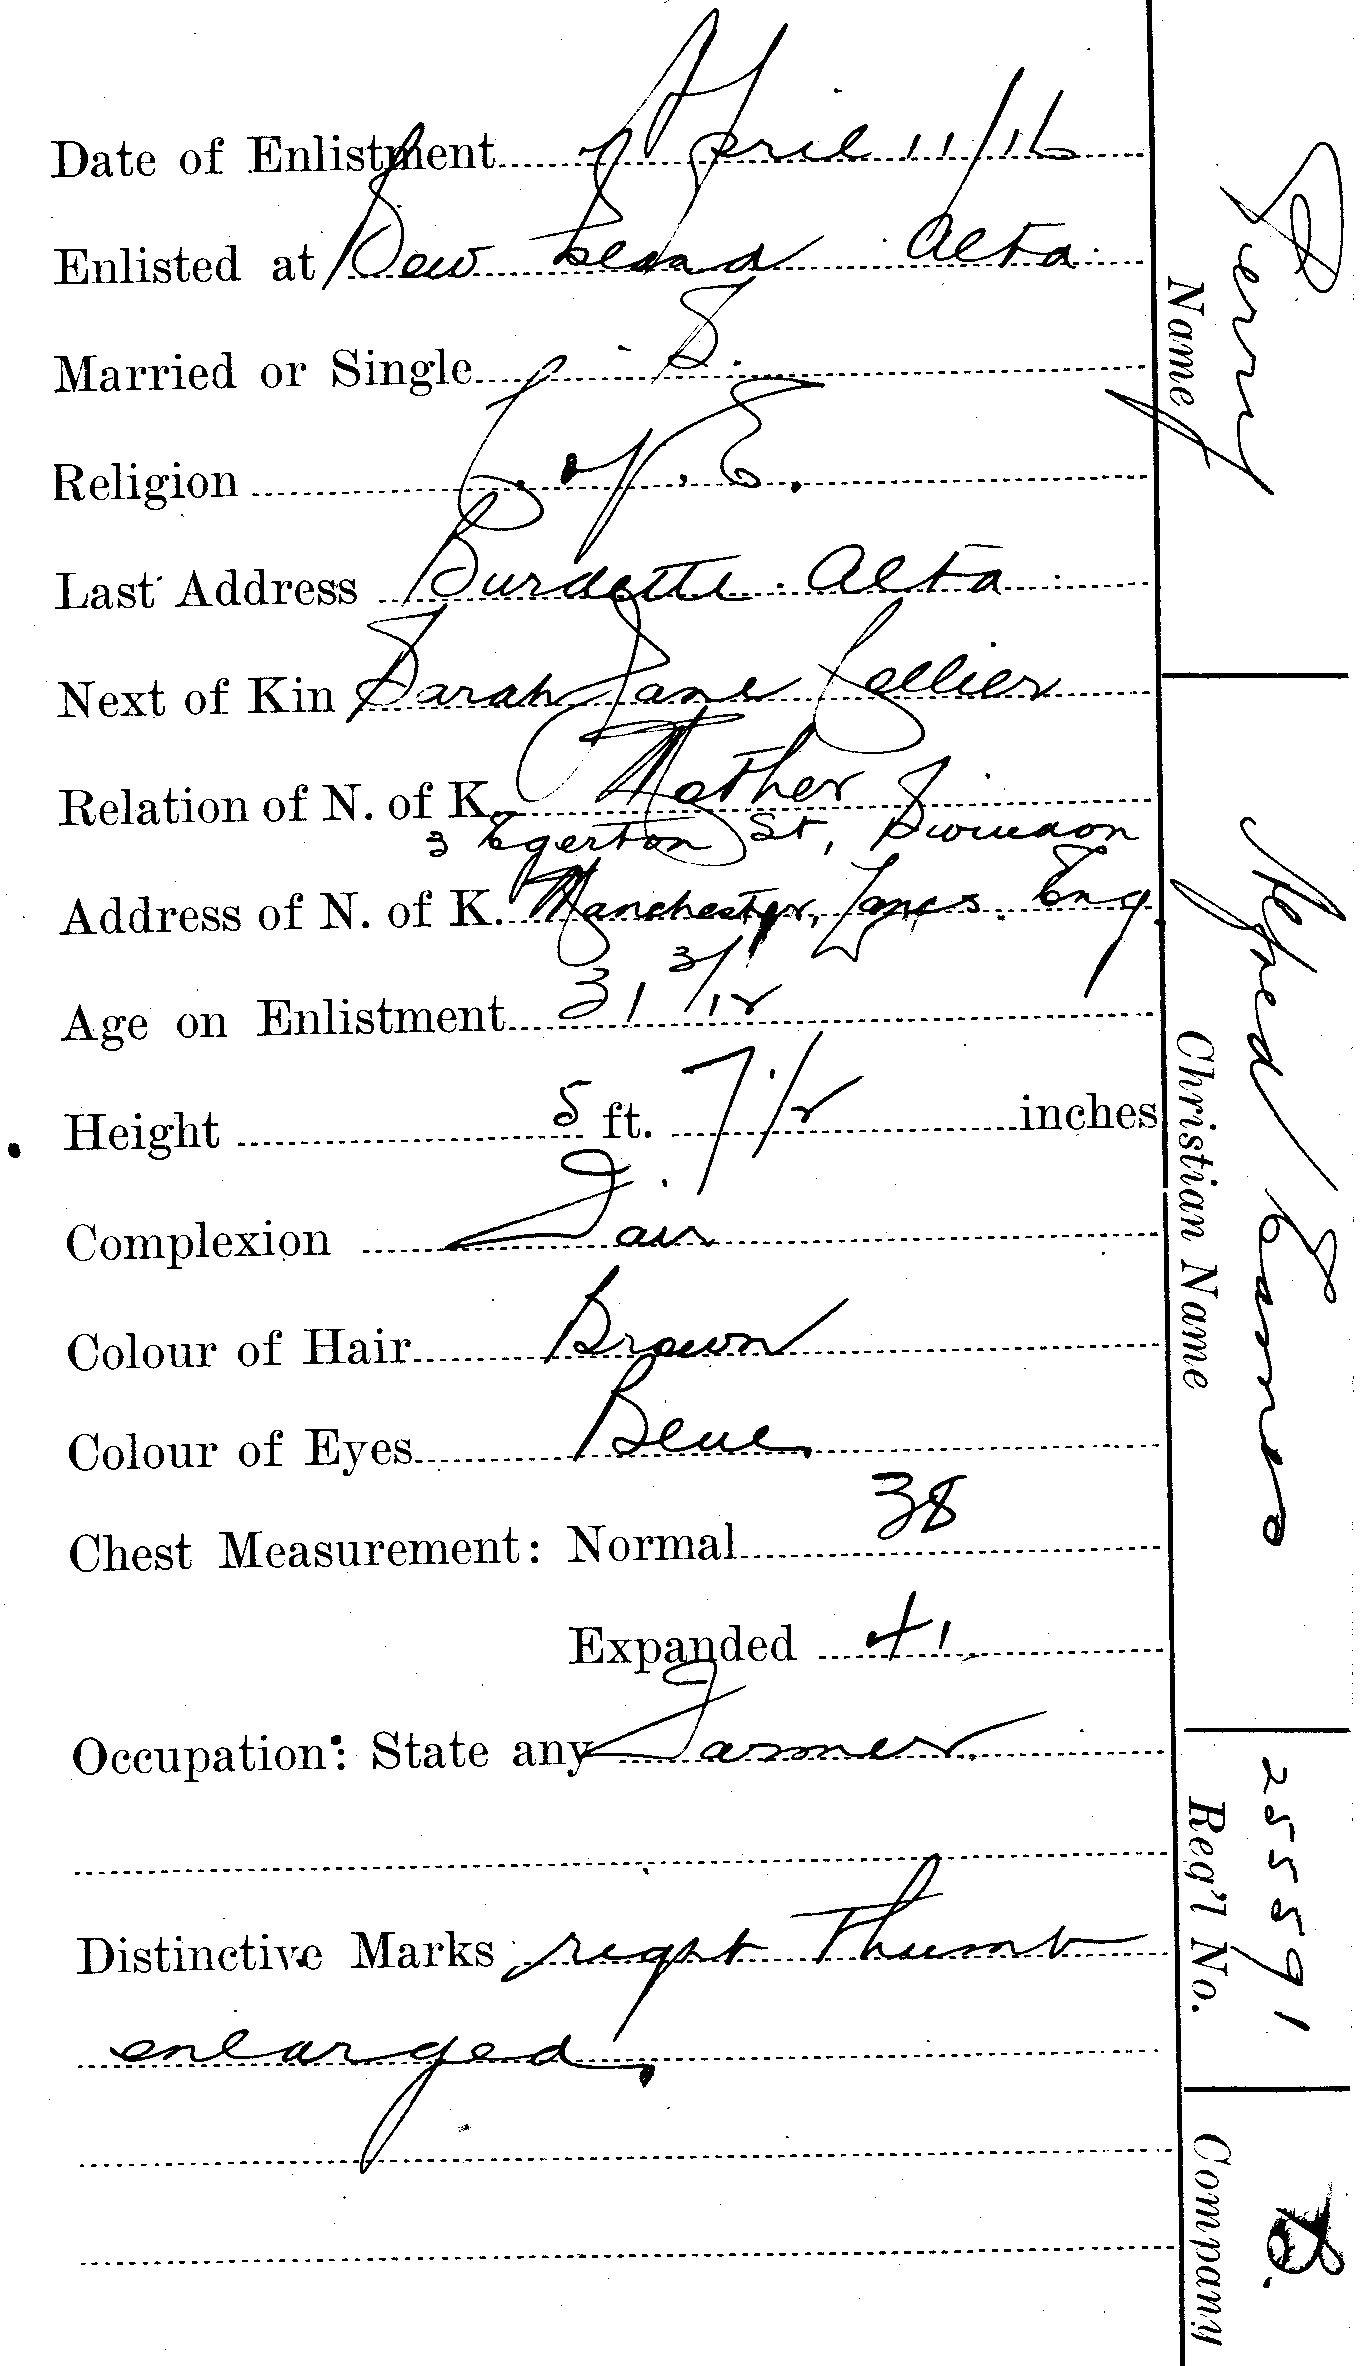 Date of Enlistment April 11/16
Enlisted at Bow Island Alta.
Married or Single S.
Religion C. of E.
Last Address Burdette Alta
Next of Kin Sarah Jane Collier
Relation of N. of K. Mother
3 Egerton St, Swindon
Address of N. of K. Manchester, Lancs. Eng.
Age on Enlistment 31 3/12
Height 5 ft. 7 1/2 inches
Complexion Fair
Colour of Hair Brown
Colour of Eyes Blue
Chest Measurement: Normal 38
Expanded 41
Occupation: State any Farmer
Distinctive Marks right Thumb
enlarged.
Perry
Name
Alfred
Christian Name
255591
Reg'l No.
B.
Company